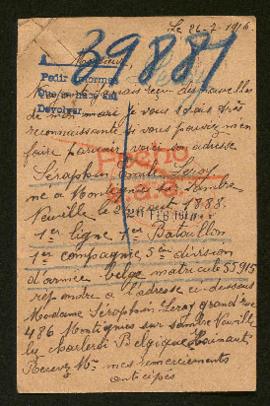 Le 26-7-1916
39887
Monsieur
Pedir informes
Que se hace
Devolver
jamais reçu des nouvelles
de mon mari je vous serais très
reconnaissante si vous pouviez m'en
faire parvenir voici son adresse
Fecho
Séraphin Leroy
né à Montignies sur Sambre
Neuville le août 1888.
1er ligne 1er Bataillon
1er compagnie 5me division
d'armée belge matricule 55915
réponse à l'adresse ci-dessous
Madame Séraphin Leroy grand rue
486 Montignies sur Sambre Neuville
lez Charleroi Belgique Hainaut
Recevez Mr mes remerciements
anticipés